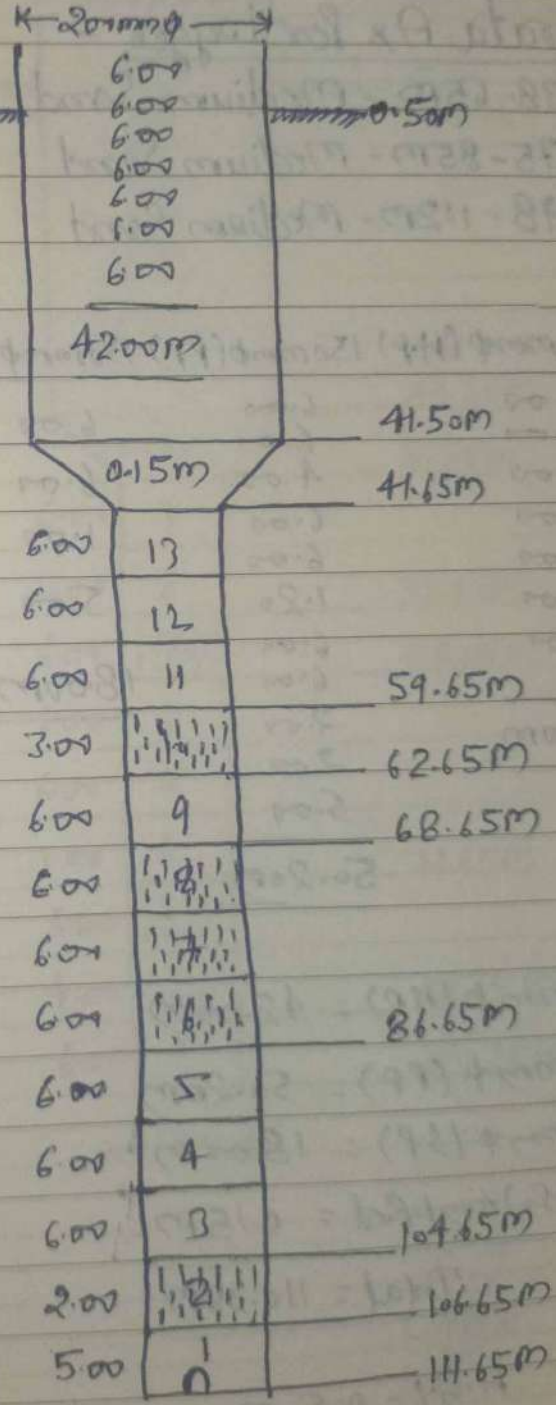 200mmφ
6.00
6.00
6.00
0.50m
6.00
6.00
6.00
6.00
42.00m
41.50m
0.15m
41.65m
6.00 13
6.00 12
6.00 11 59.65m
3.00 10 62.65m
6.00 9 68.65m
6.00 8
6.00 7
6.00 6 86.65m
6.00 5
6.00 4
6.00 3 104.65m
2.00 2 106.65m
5.00 1 111.65m